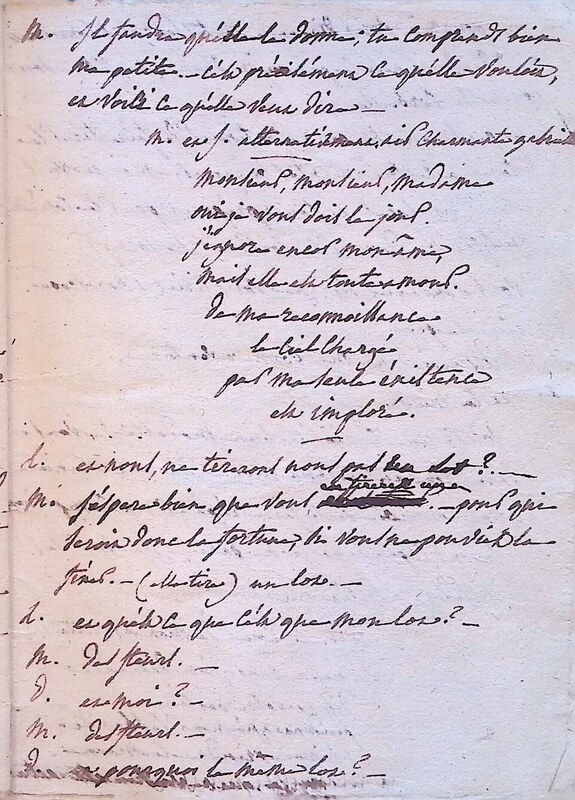 M. il faudra qu'elle le donne; tu comprends bien
ma petite. – c'est précisément ce qu'elle vouloit,
et voilà ce qu'elle veut dire –
M. et J. alternativement, air Charmante gabriel
monsieur, monsieur, madame
oui je vous dois le jour.
j'ignore encor mon âme,
mais elle est toute amour.
de ma reconnoissance
le Ciel Chargé
par ma seule éxistence
est imploré.
L. et nous, ne tirerons nous pas un lot? –
M. j'éspere bien que vous en tirerez un – pour qui
seroit donc la fortune, si vous ne pouviez la
fixer. – (elle tire) un lot. –
L. et qu'est ce que c'est que mon lot? –
M. des fleurs. –
D. et moi? –
M. des fleurs. –
D. pourquoi le même lot? –